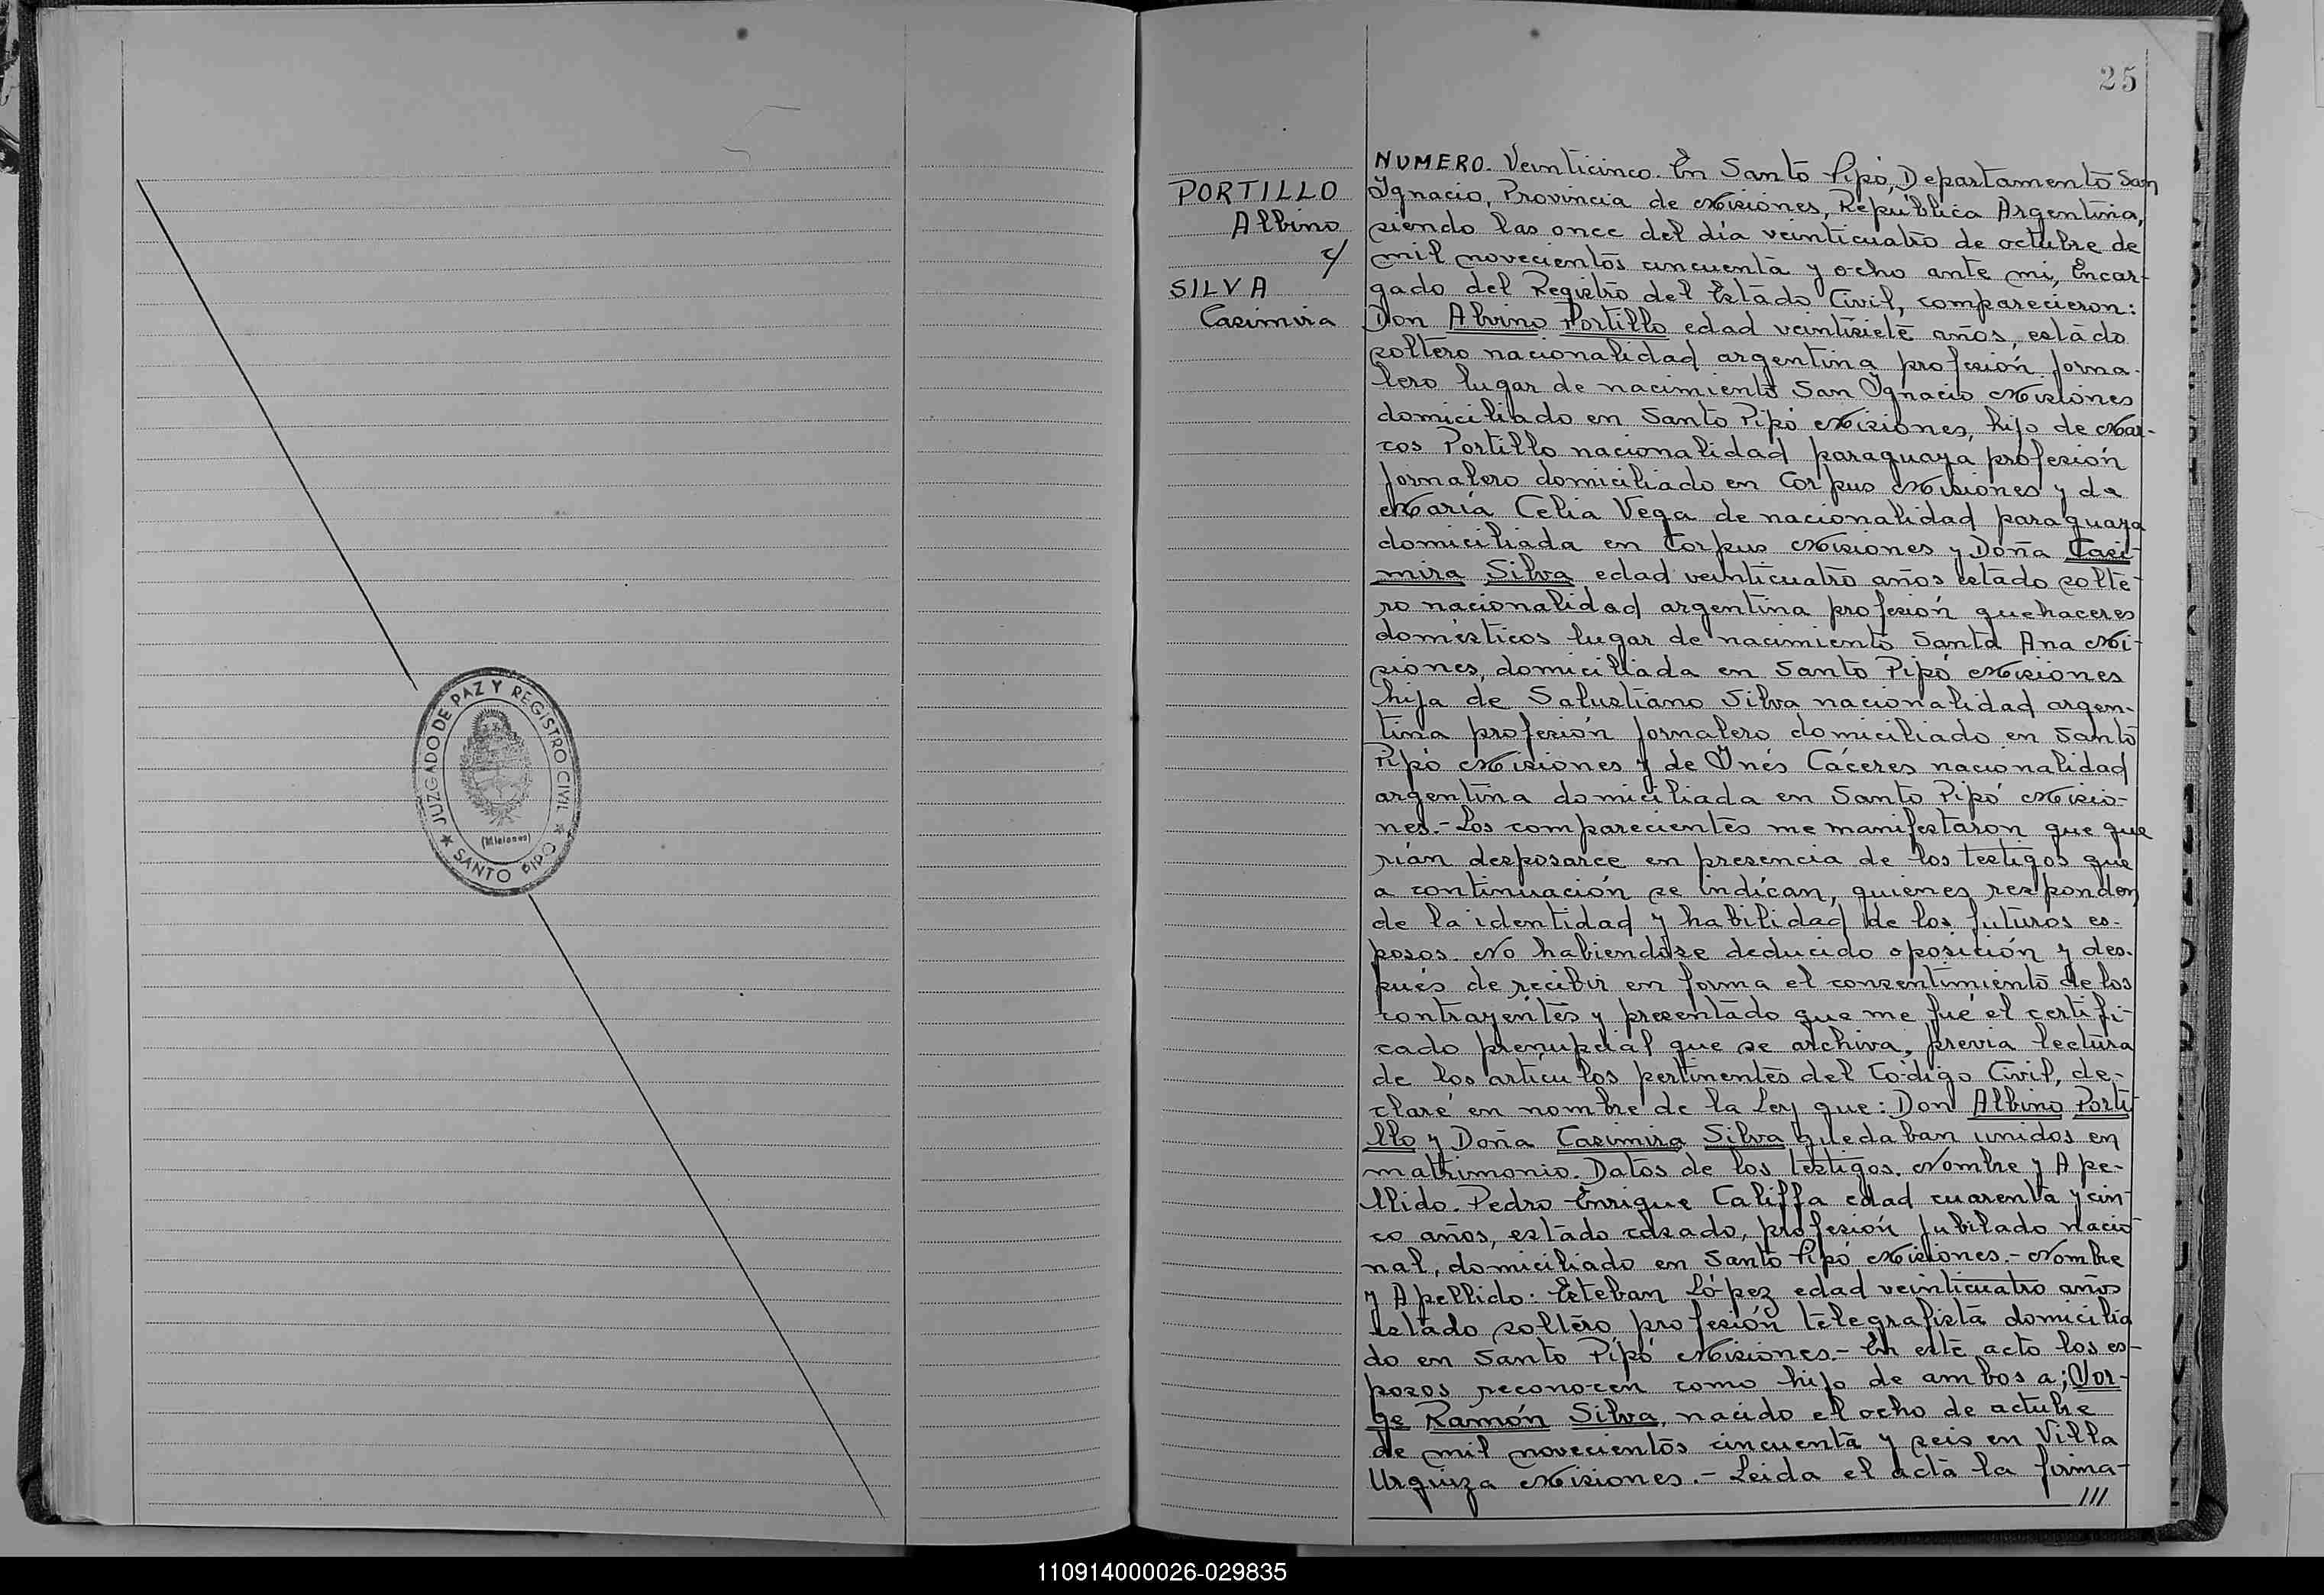 JUZGADO DE PAZ Y REGISTRO CIVIL
(Misiones)
★ SANTO PIPO ★
25
PORTILLO
Albino
c/
SILVA
Casimira
NUMERO. Veinticinco. En Santo Pipó, Departamento San
Ignacio, Provincia de Misiones, República Argentina,
siendo las once del día veinticuatro de octubre de
mil novecientos cincuenta y ocho ante mi, Encar-
gado del Registro del Estado Civil, comparecieron:
Don Alvino Portillo edad veintisiete años, estado
soltero nacionalidad argentina profesión jorna-
lero lugar de nacimiento San Ignacio Misiones
domiciliado en Santo Pipó Misiones, hijo de Mar-
cos Portillo nacionalidad paraguaya profesión
jornalero domiciliado en Corpus Misiones y de
María Celia Vega de nacionalidad paraguaya
domiciliada en Corpus Misiones y Doña Casi-
mira Silva edad veinticuatro años estado solte-
ro nacionalidad argentina profesión quehaceres
domésticos lugar de nacimiento Santa Ana Mi-
siones, domiciliada en Santo Pipó Misiones
hija de Salustiano Silva nacionalidad argen-
tina profesión jornalero domiciliado en Santo
Pipó Misiones y de Inés Cáceres nacionalidad
argentina domiciliada en Santo Pipó Misio-
nes.- Los comparecientes me manifestaron que que
rían desposarce en presencia de los testigos que
a continuación se indican, quienes responden
de la identidad y habilidad de los futuros es-
posos. No habiendose deducido oposición y des-
pués de recibir en forma el consentimiento de los
contrayentes y presentado que me fué el certifi-
cado prenupcial que se archiva, previa lectura
de los artículos pertinentes del Código Civil, de-
claré en nombre de la Ley que: Don Albino Porti
llo y Doña Casimira Silva quedaban unidos en
matrimonio. Datos de los testigos. Nombre y Ape-
llido. Pedro Enrique Califfa edad cuarenta y cin-
co años, estado casado, profesión jubilado nacio-
nal, domiciliado en Santo Pipó Misiones.- Nombre
y Apellido: Esteban López edad veinticuatro años
estado soltero, profesión telegrafista domicilia
do en Santo Pipó Misiones.- En este acto los es-
posos reconocen como hijo de ambos a; Jor-
ge Ramón Silva, nacido el ocho de octubre
de mil novecientos cincuenta y seis en Villa
Urquiza Misiones.- Leida el acta la firma-
///
110914000026-029835